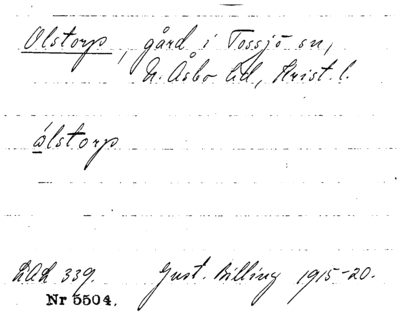 Olstorp, gård i Tossjö sn,
N. Åsbo hd, Krist. l.
ólstorp
LAL 339. Gust. Billing 1915-20.
Nr 5504.